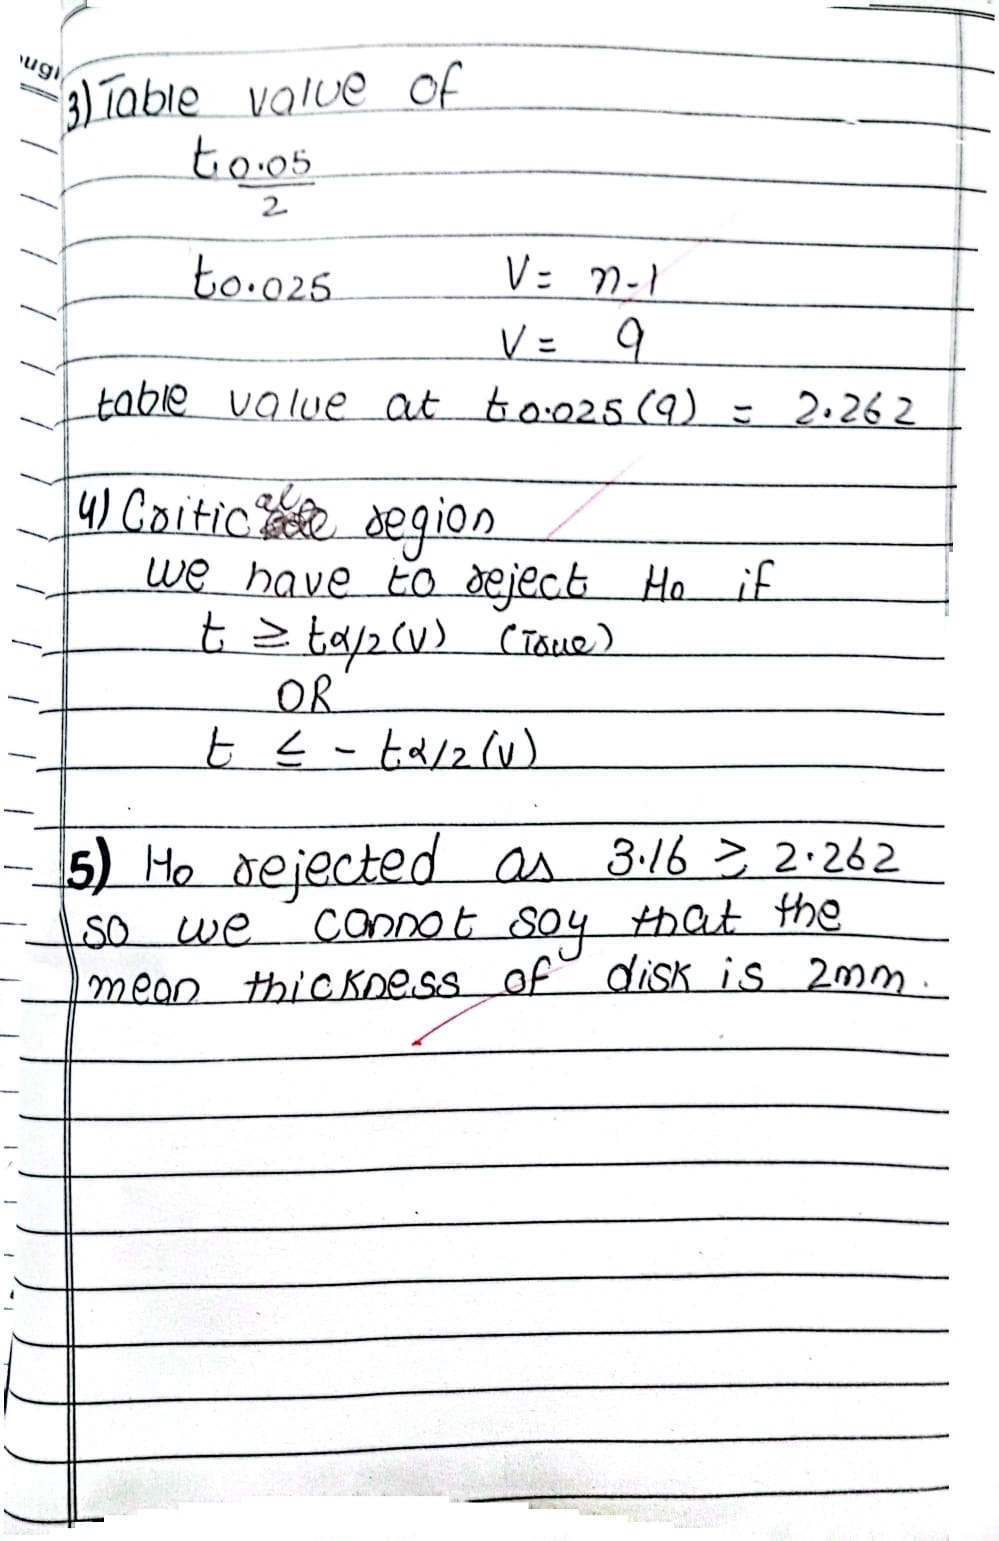 3) Table value of
t0.05
2
t0.025 V = n-1
V = 9
table value at t0.025(9) = 2.262
4) Critical region
we have to reject H0 if
t ≥ tα/2(v) (True)
OR
t ≤ - tα/2(v)
5) H0 rejected as 3.16 ≥ 2.262
so we cannot say that the
mean thickness of disk is 2mm.